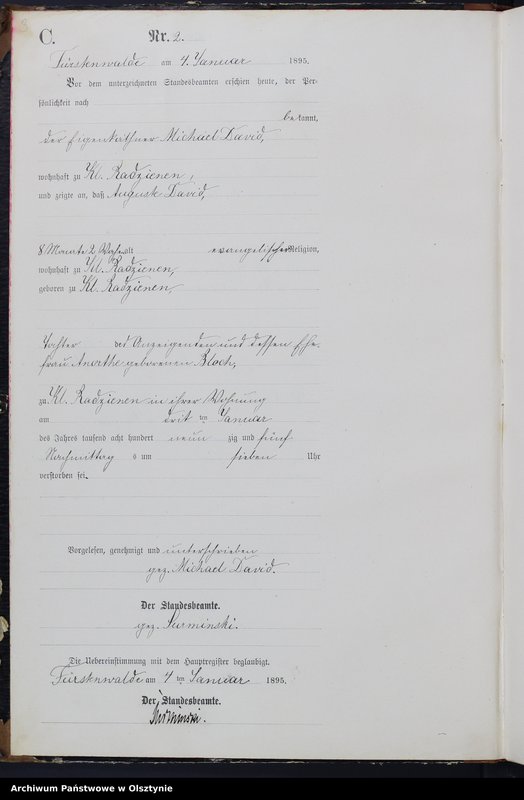 C.
Nr. 2.
Fürstenwalde am 4. Januar 1895.
Vor dem unterzeichneten Standesbeamten erschien heute, der Per-
sönlichkeit nach
bekannt,
der Eigenkäthner Michael David,
wohnhaft zu Kl. Radzienen,
und zeigte an, daß Auguste David,
8 Monate 2 alt evangelischer Religion,
wohnhaft zu Kl. Radzienen,
geboren zu Kl. Radzienen,
Tochter des Anzeigenden und dessen Ehe-
frau geborenen Bloch,
zu Kl. Radzienen in ihrer Wohnung
am drit ten Januar
des Jahres tausend acht hundert neun zig und fünf
Nachmittag s um sieben Uhr
verstorben sei.
Vorgelesen, genehmigt und unterschrieben
gez. Michael David.
Der Standesbeamte.
gez. Surminski.
Die Uebereinstimmung mit dem Hauptregister beglaubigt.
Fürstenwalde am 4 ten Januar 1895.
Der Standesbeamte.
Surminski.
Archiwum Państwowe w Olsztynie